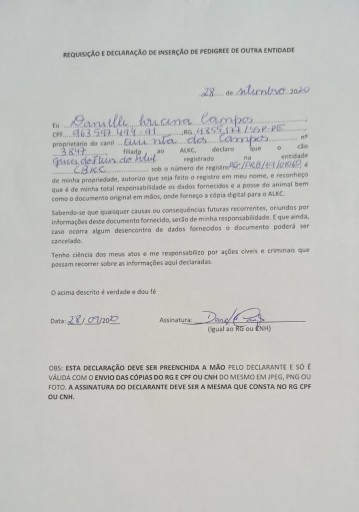 REQUISIÇÃO E DECLARAÇÃO DE INSERÇÃO DE PEDIGREE DE OUTRA ENTIDADE
28 de setembro 2020
Eu Danielle Campos
CPF , RG
proprietário do canil dos Campos nº
3847 filiado ao ALKC, declaro que o cão
registrado na entidade
CBKC sob o número de registro
de minha propriedade, autorizo que seja o registro em meu nome, e reconheço
que é de minha total responsabilidade os dados fornecidos e a posse do animal bem
como o documento original em mãos, onde forneço a cópia digital para o ALKC.
Sabendo-se que quaisquer causas ou consequências futuras recorrentes, oriundos por
informações deste documento fornecido, serão de minha responsabilidade. E que ainda,
caso ocorra algum desencontro de dados fornecidos o documento poderá ser
cancelado.
Tenho ciência dos meus atos e me responsabilizo por ações cíveis e criminais que
possam recorrer sobre as informações aqui declaradas.
O acima descrito é verdade e dou fé
Data: 28/09/2020 Assinatura:
(Igual ao RG ou CNH)
OBS: ESTA DECLARAÇÃO DEVE SER PREENCHIDA A MÃO PELO DECLARANTE E SÓ É
VÁLIDA COM O ENVIO DAS CÓPIAS DO RG E CPF OU CNH DO MESMO EM JPEG, PNG OU
FOTO. A ASSINATURA DO DECLARANTE DEVE SER A MESMA QUE CONSTA NO RG CPF
OU CNH.